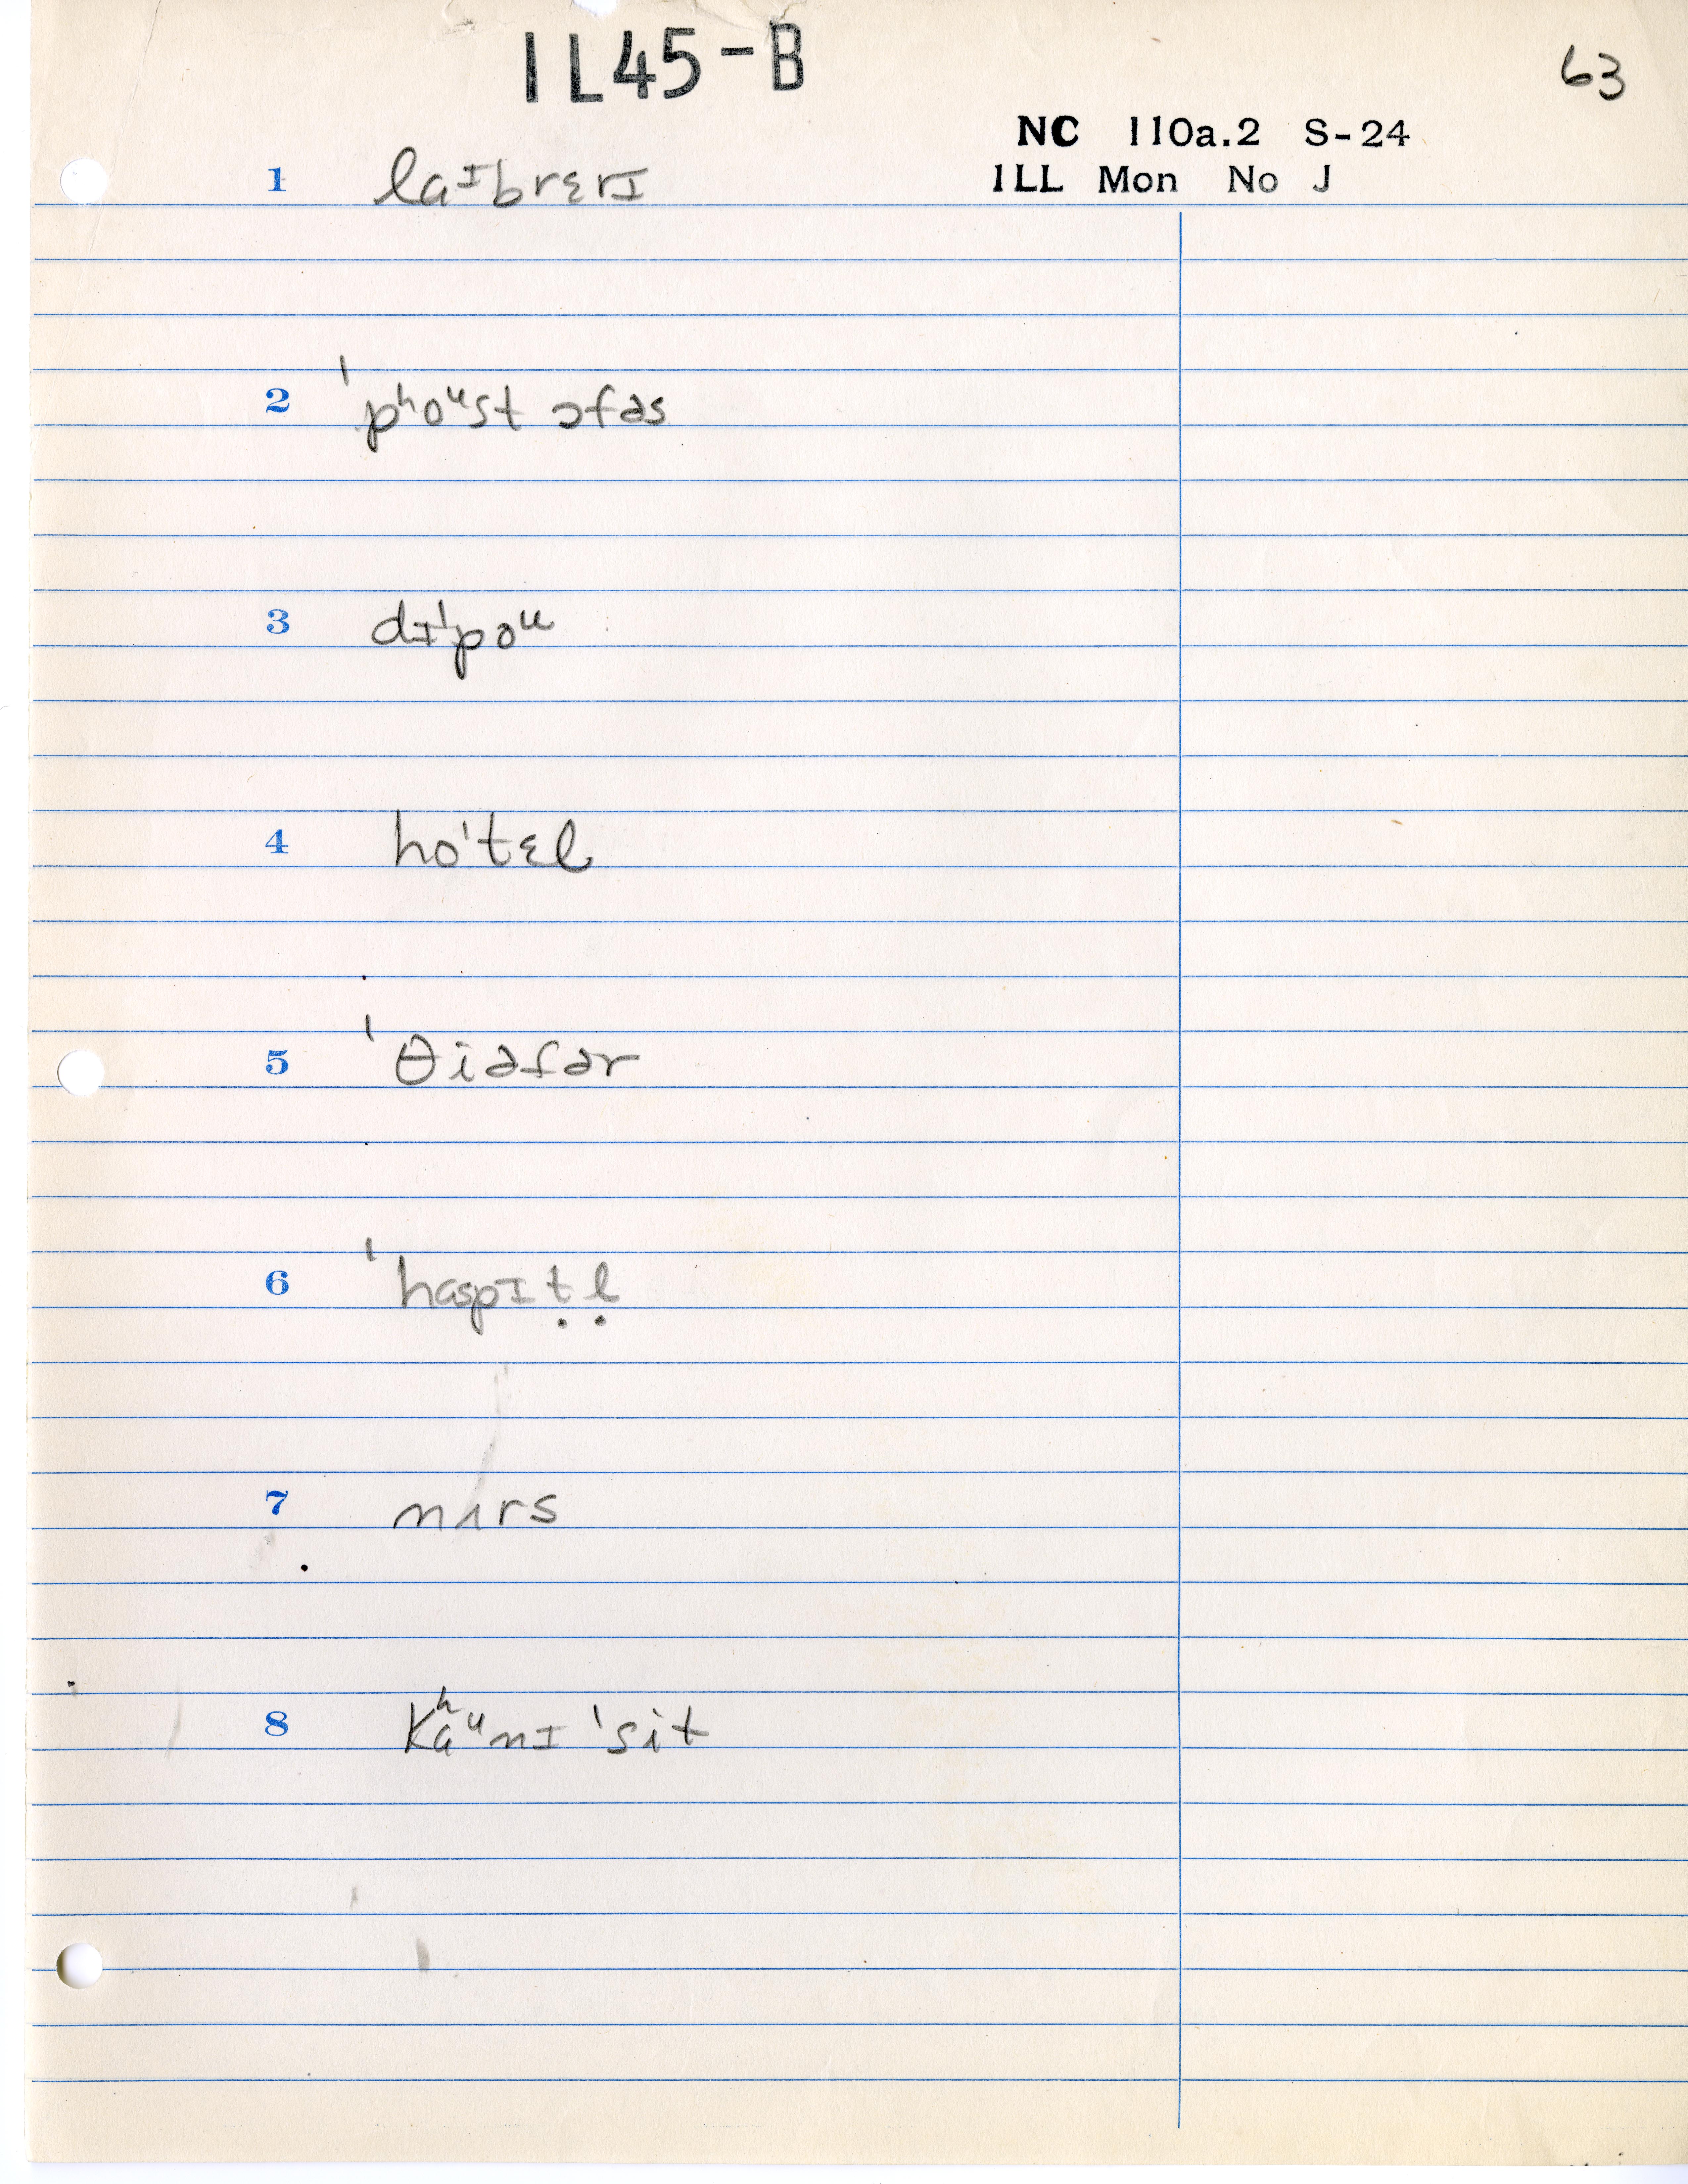 IL45-B
63
NC 110a.2 S-24
ILL Mon No J
1 laᶦbrɛrɪ
2 ˈpʰoᵘst ɔfəs
3 dɪˈpoᵘ
4 hoˈtɛl
5 ˈθiəfər
6 ˈhaspɪṭḷ
7 nɪrs
8 Kʰaᵘnɪ ˈsit